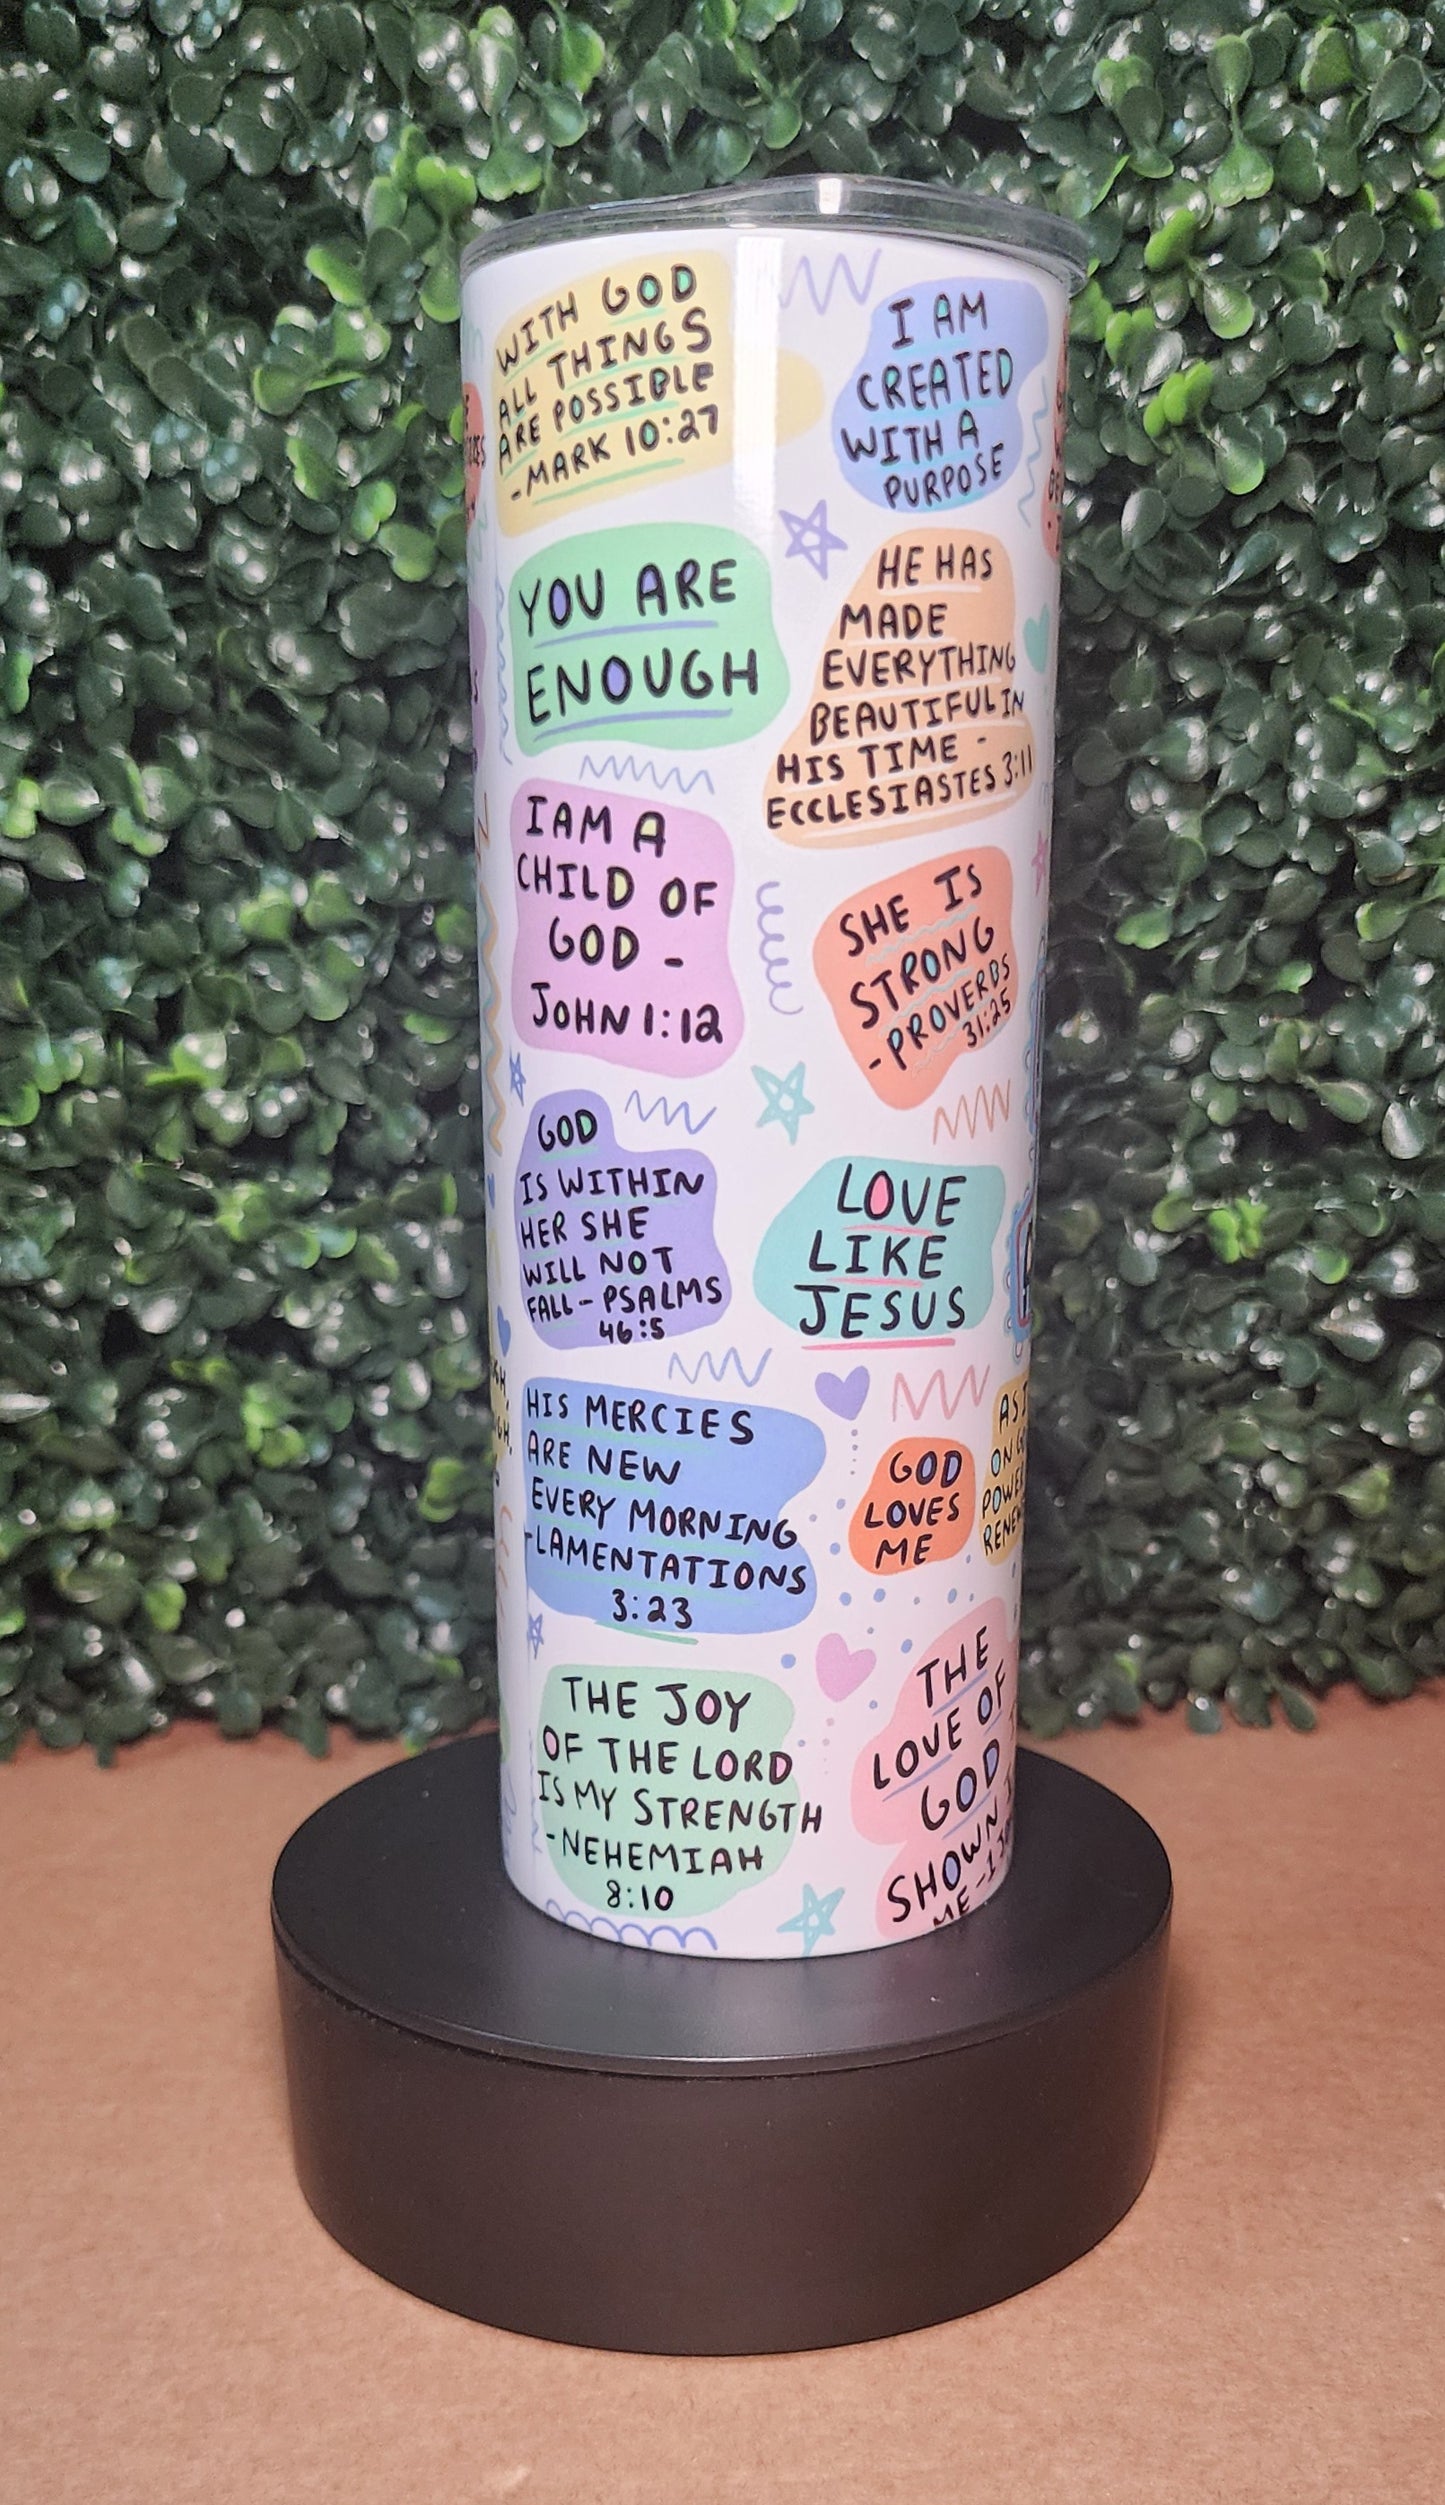 WITH GOD
ALL THINGS
ARE POSSIBLE
-MARK 10:27
YOU ARE
ENOUGH
I AM A
CHILD OF
GOD -
JOHN 1:12
GOD
IS WITHIN
HER SHE
WILL NOT
FALL - PSALMS
46:5
HIS MERCIES
ARE NEW
EVERY MORNING
-LAMENTATIONS
3:23
THE JOY
OF THE LORD
IS MY STRENGTH
-NEHEMIAH
8:10
I AM
CREATED
WITH A
PURPOSE
HE HAS
MADE
EVERYTHING
BEAUTIFUL IN
HIS TIME -
ECCLESIASTES 3:11
SHE IS
STRONG
-PROVERBS
31:25
LOVE
LIKE
JESUS
GOD
LOVES
ME
AS I
ON
THE
LOVE OF
GOD
SHOWN
ME -1